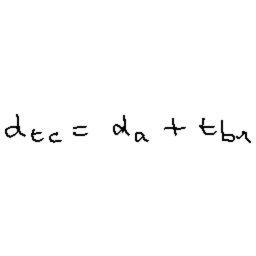 d_{tc} = d_a + t_{br}